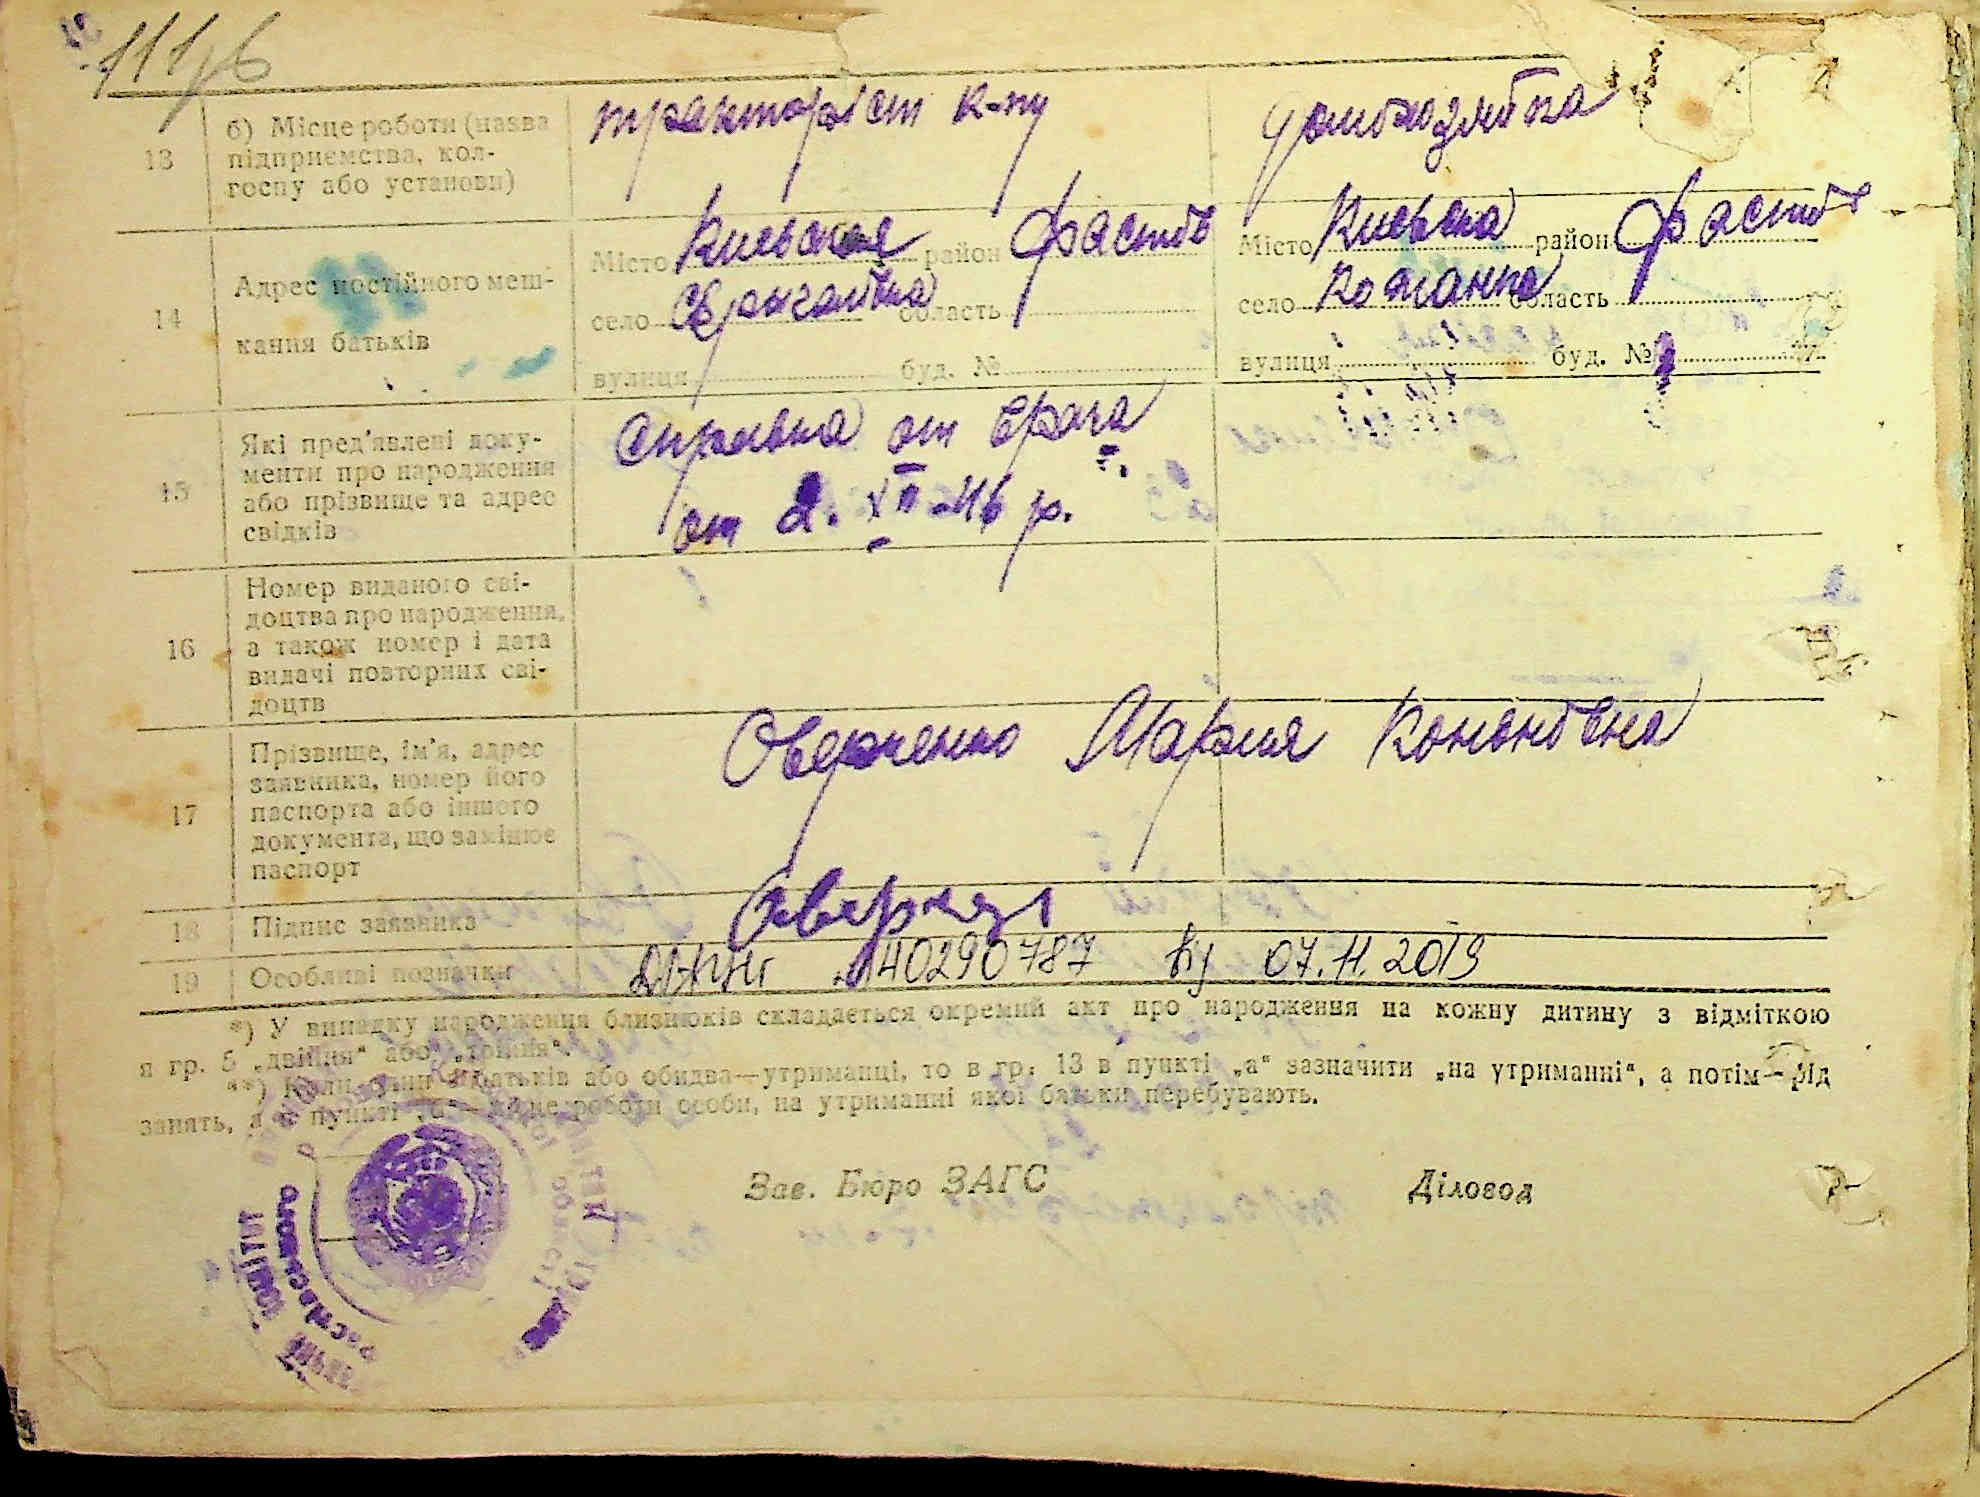 111/6
13
б) Місце роботи (назва
підприємства, кол-
госпу або установи)
тракторіст к-пу
домохозяйка
14
Адрес постійного меш-
кання батьків
Місто Киевская район Фастів
село область
вулиця буд. №
Місто Киевска район Фастів
село Кожанка область
вулиця буд. №
15
Які пред'явлені доку-
менти про народження
або прізвище та адрес
свідків
Справка от врача
от 2. XII-46 р.
16
Номер виданого сві-
доцтва про народження,
а також номер і дата
видачі повторних сві-
доцтв
17
Прізвище, ім'я, адрес
заявника, номер його
паспорта або іншого
документа, що замінює
паспорт
Оверченко Мария Кононовна
18
Підпис заявника
19
Особливі позначки
40290787 07.11.2019
*) У випадку народження близнюків складається окремий акт про народження на кожну дитину з відміткою
в гр. 5 „двійня“ або „трійня“.
**) Коли один з батьків або обидва—утриманці, то в гр. 13 в пункті „а“ зазначити „на утриманні“, а потім—рід
занять, а в пункті „б“—місце роботи особи, на утриманні якої батьки перебувають.
Зав. Бюро ЗАГС
Діловод